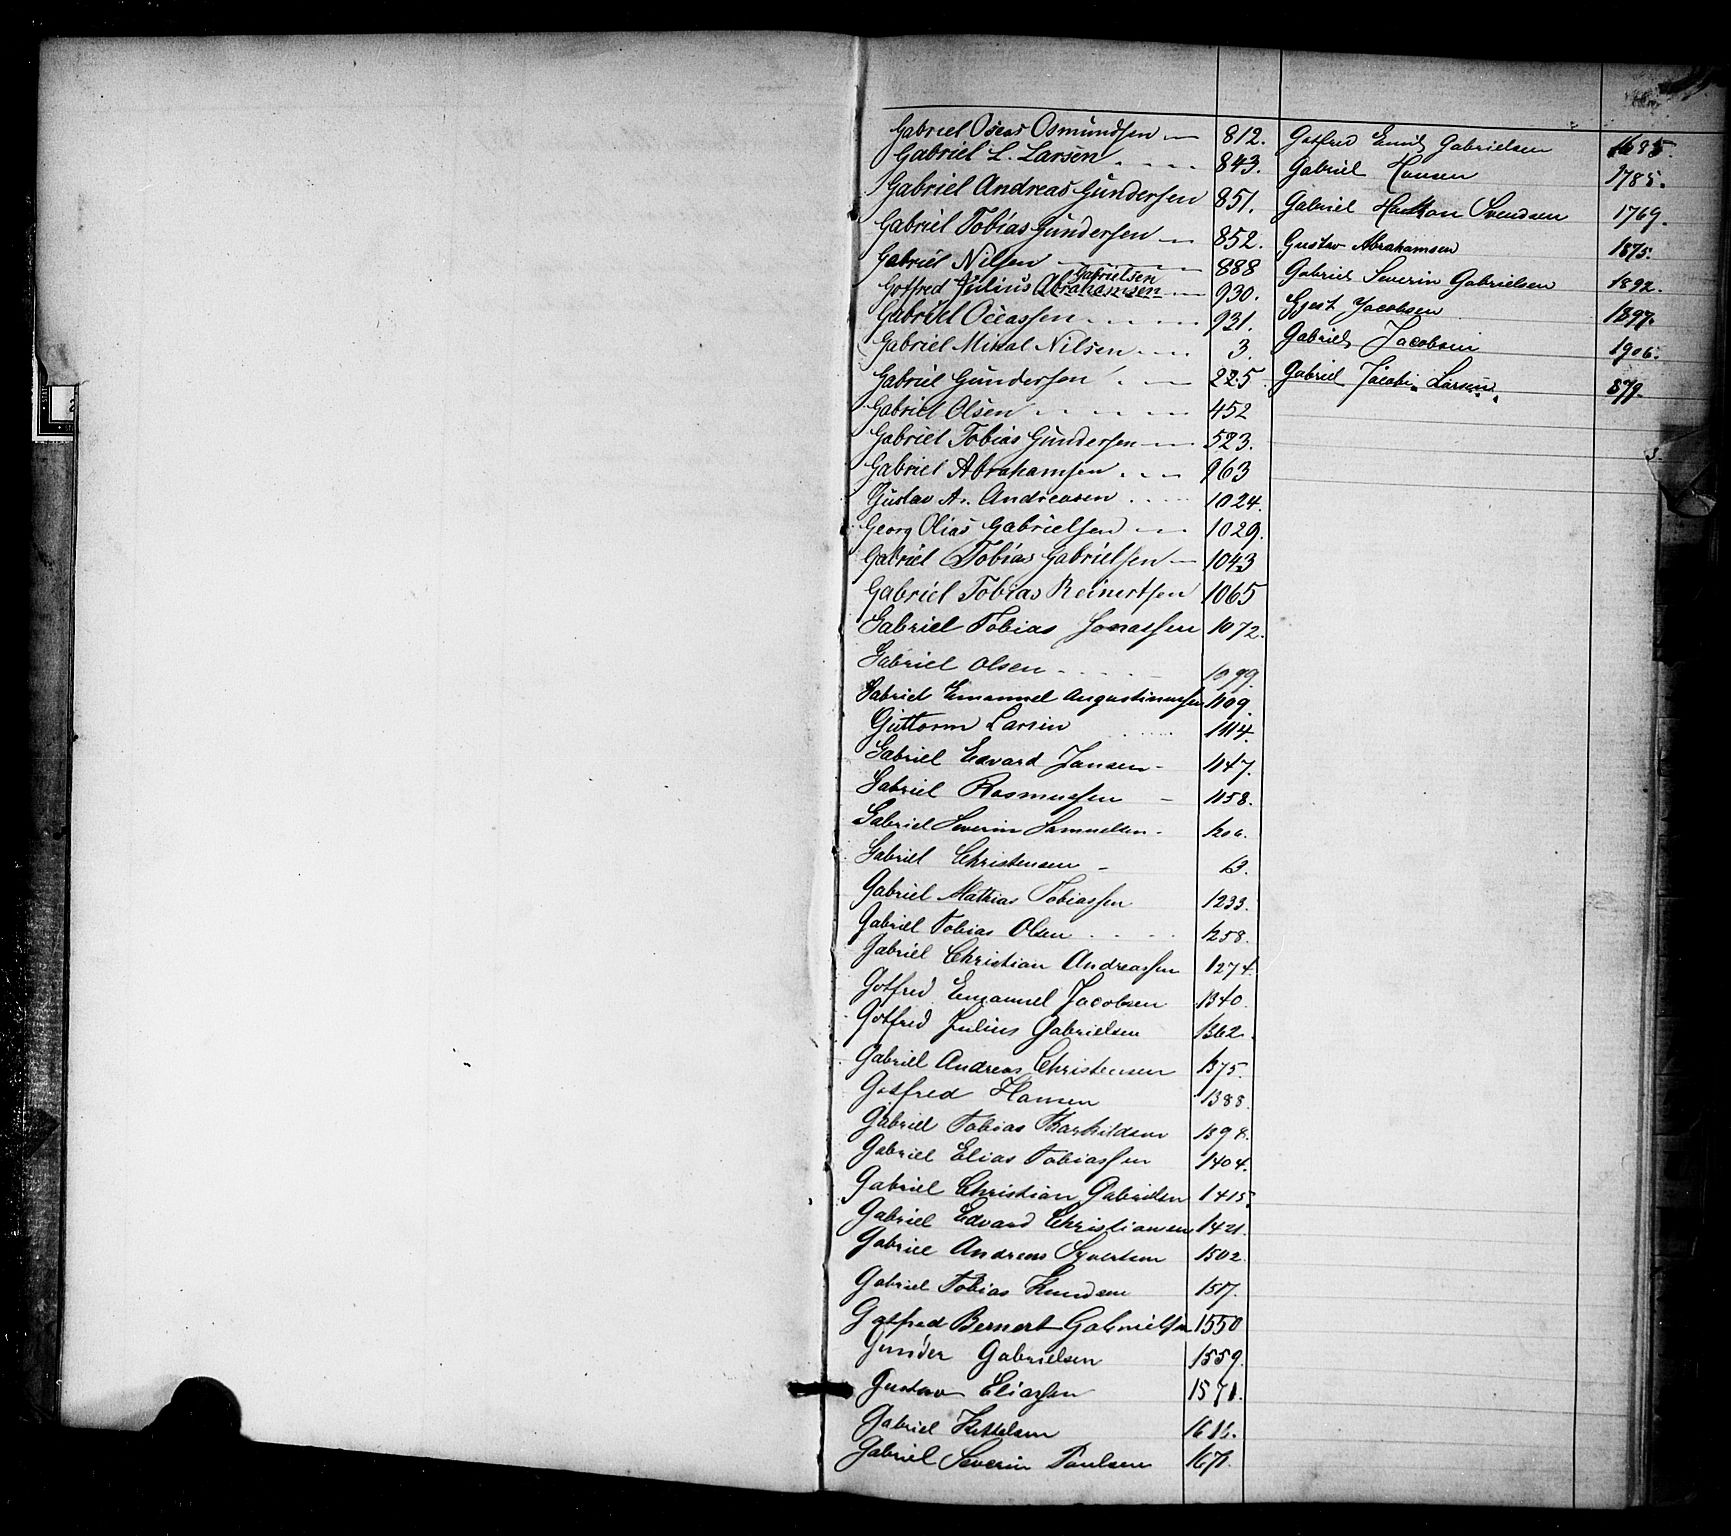 Gabriel Oseas Osmundsen 812.
Gabriel L. Larsen 843.
Gabriel Andreas Gundersen 851.
Gabriel Tobias Gundersen 852.
Gabriel Nilsen 888
Gabrielsen
Gotfred Julius Abrahamsen 930.
Gabriel Oseassen 931.
Gabriel Mikal Nilsen 3.
Gabriel Gundersen 225
Gabriel Olsen 452
Gabriel Tobias Gundersen 523.
Gabriel Abrahamsen 963
Gustav A. Andreasen 1024.
Georg Olias Gabrielsen 1029.
Gabriel Tobias Gabrielsen 1043
Gabriel Tobias Reinertsen 1065
Gabriel Tobias Jonassen 1072.
Gabriel Olsen 1099.
Gabriel Emanuel Augustinussen 1109.
Guttorm Larsen 1114.
Gabriel Edvard Jansen 1147.
Gabriel Rasmussen 1158.
Gabriel Severin Samuelsen 1206.
Gabriel Christensen 13.
Gabriel Mathias Tobiassen 1233.
Gabriel Tobias Olsen 1258.
Gabriel Christian Andreassen 1274.
Gotfred Emanuel Jacobsen 1340.
Gotfred Julius Gabrielsen 1362.
Gabriel Andreas Christensen 1375.
Gotfred Hansen 1388.
Gabriel Tobias 1398.
Gabriel Elias Tobiassen 1404.
Gabriel Christian Gabrielsen 1415.
Gabriel Edvard Christiansen 1421.
Gabriel Andreas Syvertsen 1502.
Gabriel Tobias Knudsen 1517.
Gotfred Bernert Gabrielsen 1550
Gunder Gabrielsen 1559.
Gustav Eliassen 1571.
Gabriel Kettelsen 1616.
Gabriel Severin Paulsen 1671.
Gotfred Emil Gabrielsen 1685.
Gabriel Hansen 1785.
Gabriel Svendsen 1769.
Gustav Abrahamsen 1875.
Gabriel Severin Gabrielsen 1892.
Gjert Jacobsen 1897.
Gabriel Jacobsen 1906.
Gabriel Jacob Larsen 879.